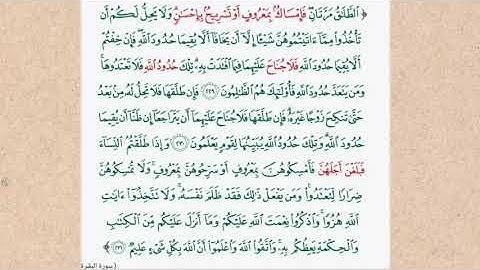 ﴿ ٱلطَّلَٰقُ مَرَّتَانِۖ فَإِمۡسَاكُۢ بِمَعۡرُوفٍ أَوۡ تَسۡرِيحُۢ بِإِحۡسَٰنٖۗ وَلَا يَحِلُّ لَكُمۡ أَن
تَأۡخُذُواْ مِمَّآ ءَاتَيۡتُمُوهُنَّ شَيۡـًٔا إِلَّآ أَن يَخَافَآ أَلَّا يُقِيمَا حُدُودَ ٱللَّهِۖ فَإِنۡ خِفۡتُمۡ
أَلَّا يُقِيمَا حُدُودَ ٱللَّهِ فَلَا جُنَاحَ عَلَيۡهِمَا فِيمَا ٱفۡتَدَتۡ بِهِۦۗ تِلۡكَ حُدُودُ ٱللَّهِ فَلَا تَعۡتَدُوهَاۚ
وَمَن يَتَعَدَّ حُدُودَ ٱللَّهِ فَأُوْلَٰٓئِكَ هُمُ ٱلظَّٰلِمُونَ ٢٢٩ فَإِن طَلَّقَهَا فَلَا تَحِلُّ لَهُۥ مِنۢ بَعۡدُ
حَتَّىٰ تَنكِحَ زَوۡجًا غَيۡرَهُۥۗ فَإِن طَلَّقَهَا فَلَا جُنَاحَ عَلَيۡهِمَآ أَن يَتَرَاجَعَآ إِن ظَنَّآ أَن يُقِيمَا
حُدُودَ ٱللَّهِۗ وَتِلۡكَ حُدُودُ ٱللَّهِ يُبَيِّنُهَا لِقَوۡمٖ يَعۡلَمُونَ ٢٣٠ وَإِذَا طَلَّقۡتُمُ ٱلنِّسَآءَ
فَبَلَغۡنَ أَجَلَهُنَّ فَأَمۡسِكُوهُنَّ بِمَعۡرُوفٍ أَوۡ سَرِّحُوهُنَّ بِمَعۡرُوفٖۚ وَلَا تُمۡسِكُوهُنَّ
ضِرَارٗا لِّتَعۡتَدُواْۚ وَمَن يَفۡعَلۡ ذَٰلِكَ فَقَدۡ ظَلَمَ نَفۡسَهُۥۚ وَلَا تَتَّخِذُوٓاْ ءَايَٰتِ
ٱللَّهِ هُزُوٗاۚ وَٱذۡكُرُواْ نِعۡمَتَ ٱللَّهِ عَلَيۡكُمۡ وَمَآ أَنزَلَ عَلَيۡكُم مِّنَ ٱلۡكِتَٰبِ
وَٱلۡحِكۡمَةِ يَعِظُكُم بِهِۦۚ وَٱتَّقُواْ ٱللَّهَ وَٱعۡلَمُوٓاْ أَنَّ ٱللَّهَ بِكُلِّ شَيۡءٍ عَلِيمٞ ٢٣١ ﴾
( سورة البقرة